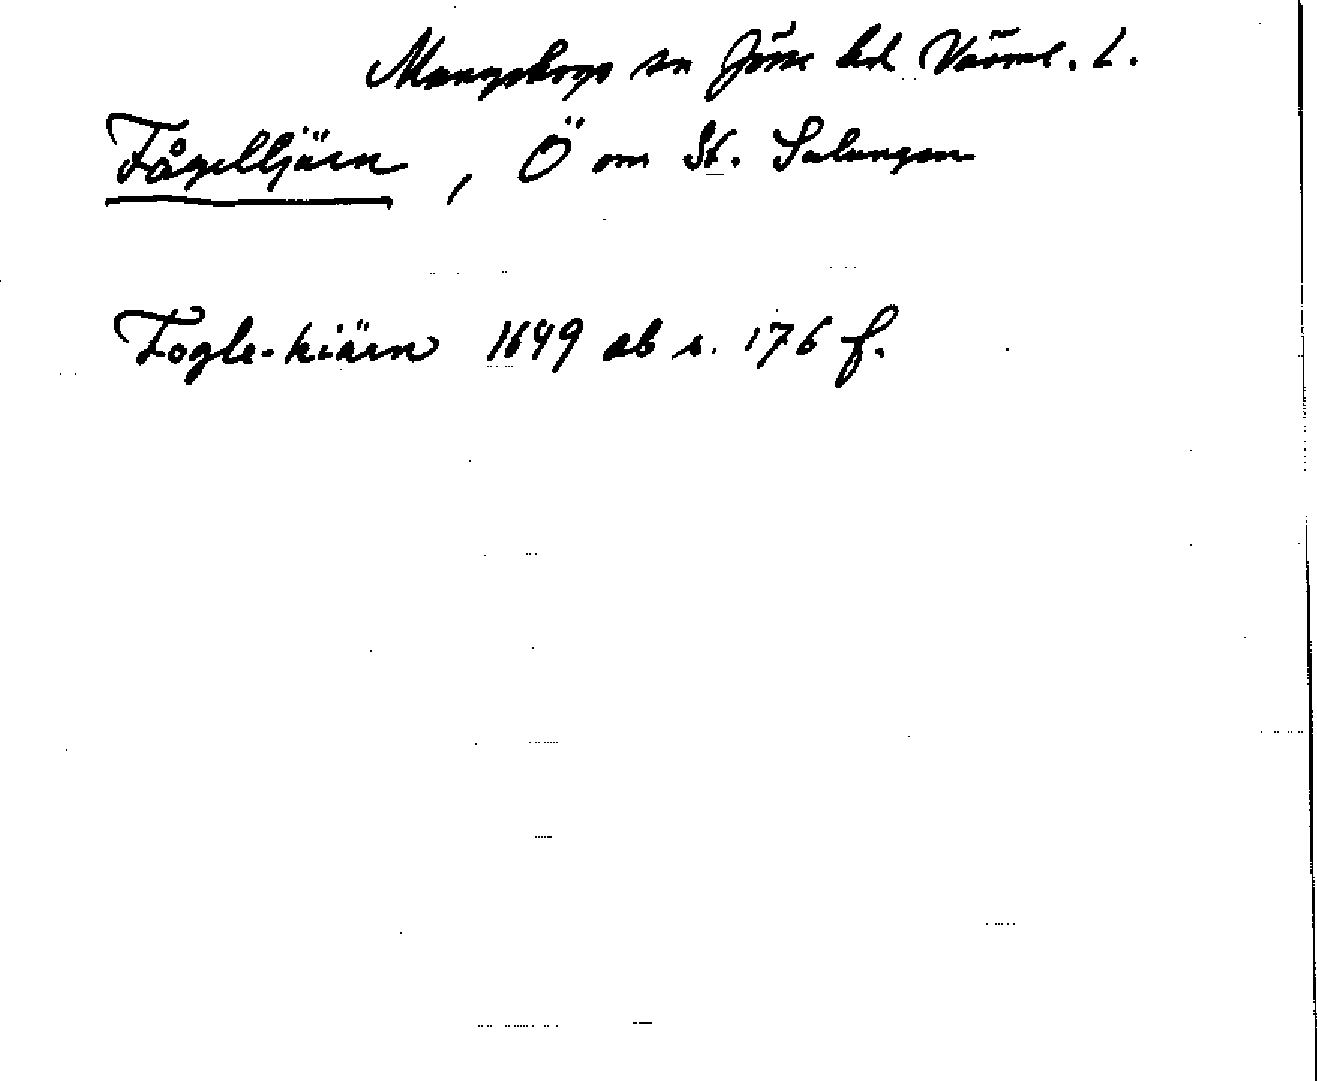 Mangskogs sn Jösse hd Värml. L.
Fågeltjärn, Ö om St. Salungen
Fogle-kiärn 1649 ab s. 176 f.